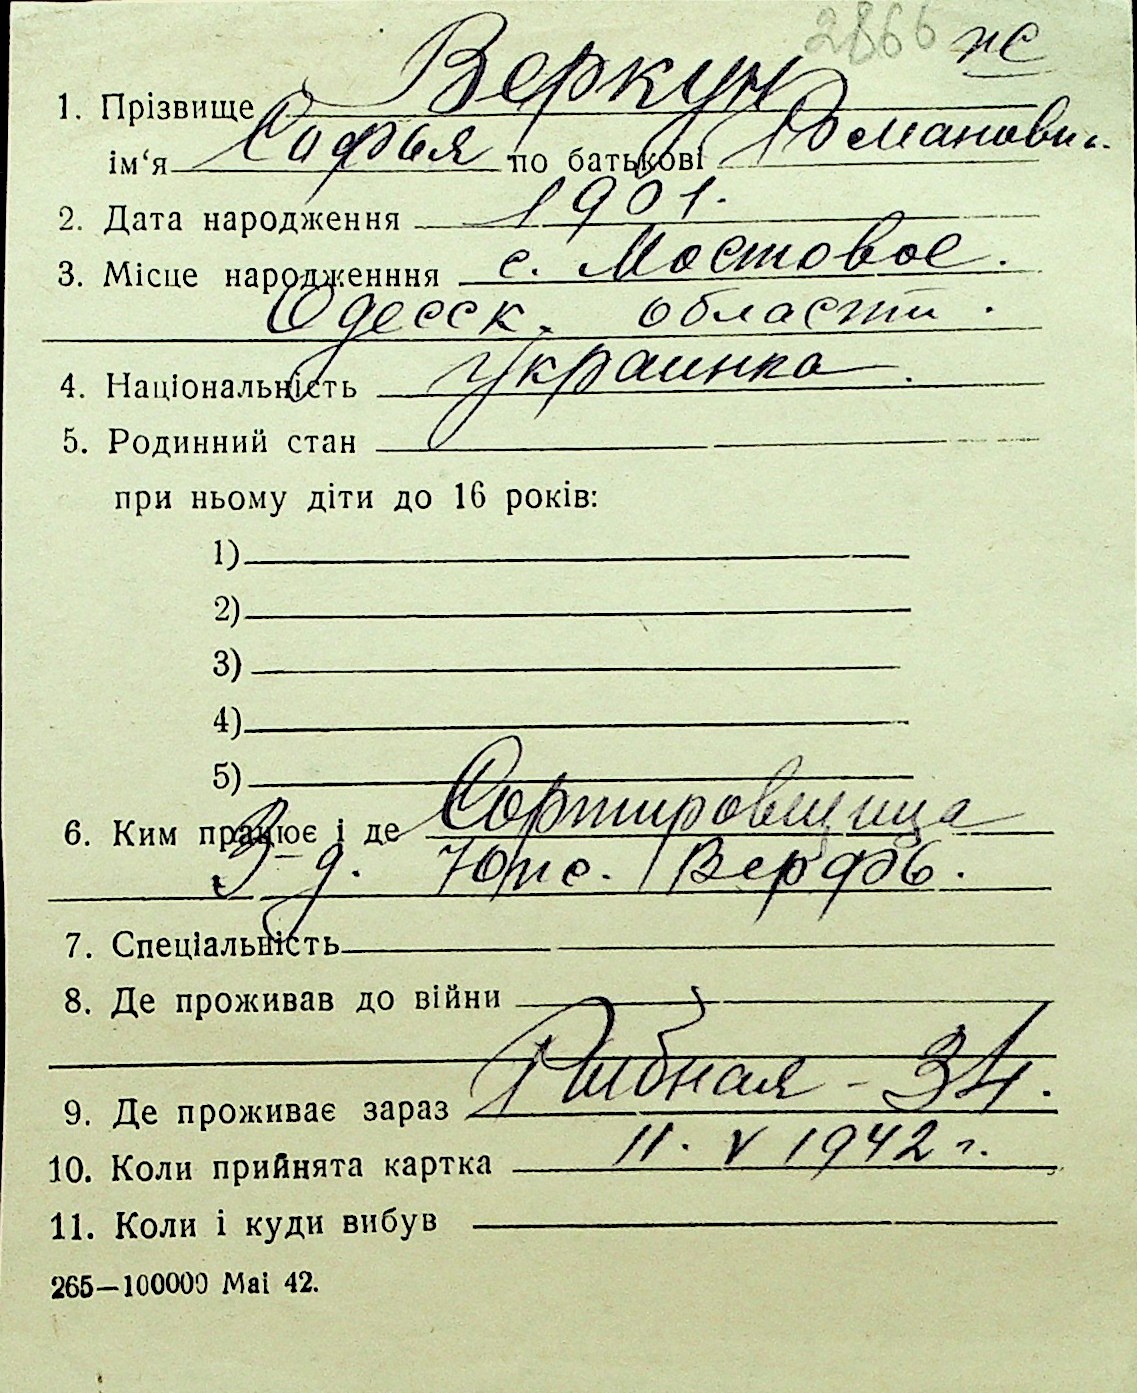 2866 пс
1. Прізвище Веркун
ім‘я Софья по батькові Романовн.
2. Дата народження 1901.
3. Місце народженння с. Мостовое.
Одесск. области.
4. Національність украинка.
5. Родинний стан
при ньому діти до 16 років:
1)
2)
3)
4)
5)
6. Ким працює і де Сортировщица
З-д. Южс. Верфь.
7. Спеціальність
8. Де проживав до війни
9. Де проживає зараз Рыбная - 34.
10. Коли прийнята картка 11. V 1942 г.
11. Коли і куди вибув
265—100000 Маі 42.